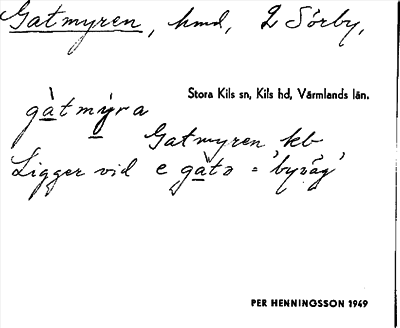 Gatmyren, hmd, 2 Sörby,
Stora Kils sn, Kils hd, Värmlands län.
gàtmýra
Gatmyren kb
Ligger vid e gàtə = 'byväg'
PER HENNINGSSON 1949